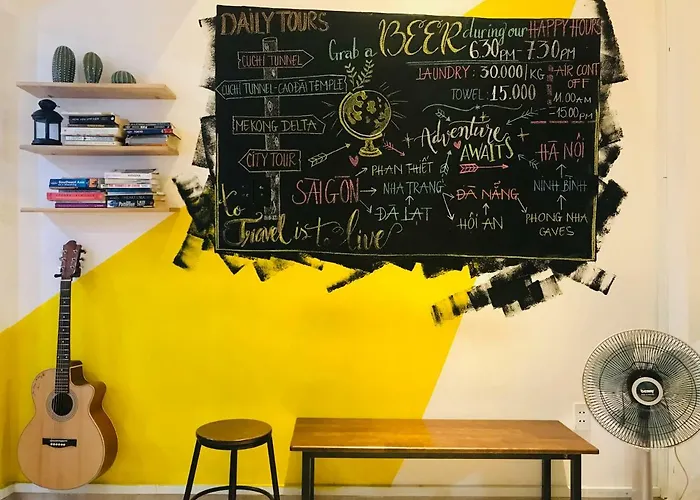 DAILY TOURS
CUCHI TUNNEL
CUCHI TUNNEL-CAOĐAI TEMPLE
MEKONG DELTA
CITY TOUR
To Travel is to live
Grab a BEER during our HAPPY HOURS
6:30PM - 7:30PM
LAUNDRY: 30.000/KG
TOWEL: 15.000
AIR CONT
OFF
11.00AM
-15.00PM
Adventure
AWAITS
SAIGON
PHAN THIẾT
NHA TRANG
ĐÀ LẠT
ĐÀ NẴNG
HỘI AN
HÀ NỘI
NINH BÌNH
PHONG NHA
CAVES